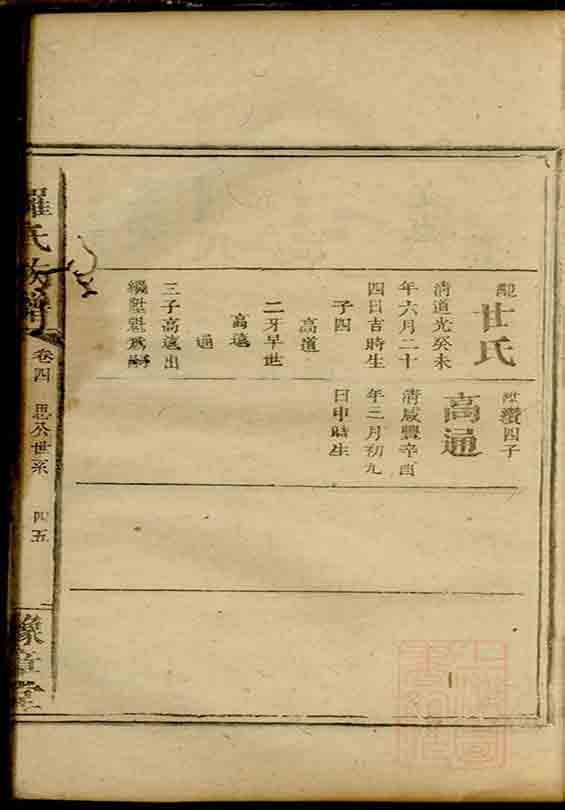 配
甘氏
清道光癸未
年六月二十
四日吉時生
子四
高道
二牙早世
高遠
通
三子高遠出
繼陞魁為嗣
陞瓚四子
高通
清咸豐辛酉
年三月初九
日申時生
羅氏族譜
卷四
思公世系
四五
豫章堂